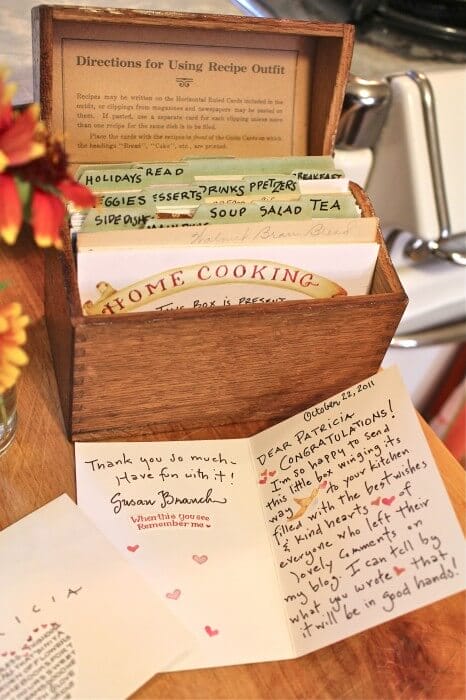 Directions for Using Recipe Outfit
Recipes may be written on the Horizontal Ruled Cards included in the
outfit, or clippings from magazines and newspapers may be pasted on
them. If pasted, use a separate card for each clipping unless more
than one recipe for the same dish is to be filed.
Place the cards with the recipes in front of the Guide Cards on which
the headings "Bread", "Cake", etc., are printed.
HOLIDAYS READ BREAKFAST
EGGIES ESSERTS DRINKS PPETIZERS
SIDE DISH SOUP SALAD TEA
Walnut Bran Bread
HOME COOKING
THIS BOX IS PRESENT
October 22, 2011
DEAR PATRICIA
CONGRATULATIONS!
I'm so happy to send
this little box winging its
way to your kitchen
filled with the best wishes
& kind hearts of
everyone who left their
lovely comments on
my blog. I can tell by
what you wrote that
it will be in good hands!
Thank you so much~
Have fun with it!
Susan Branch
When this you see
Remember me
ICIA